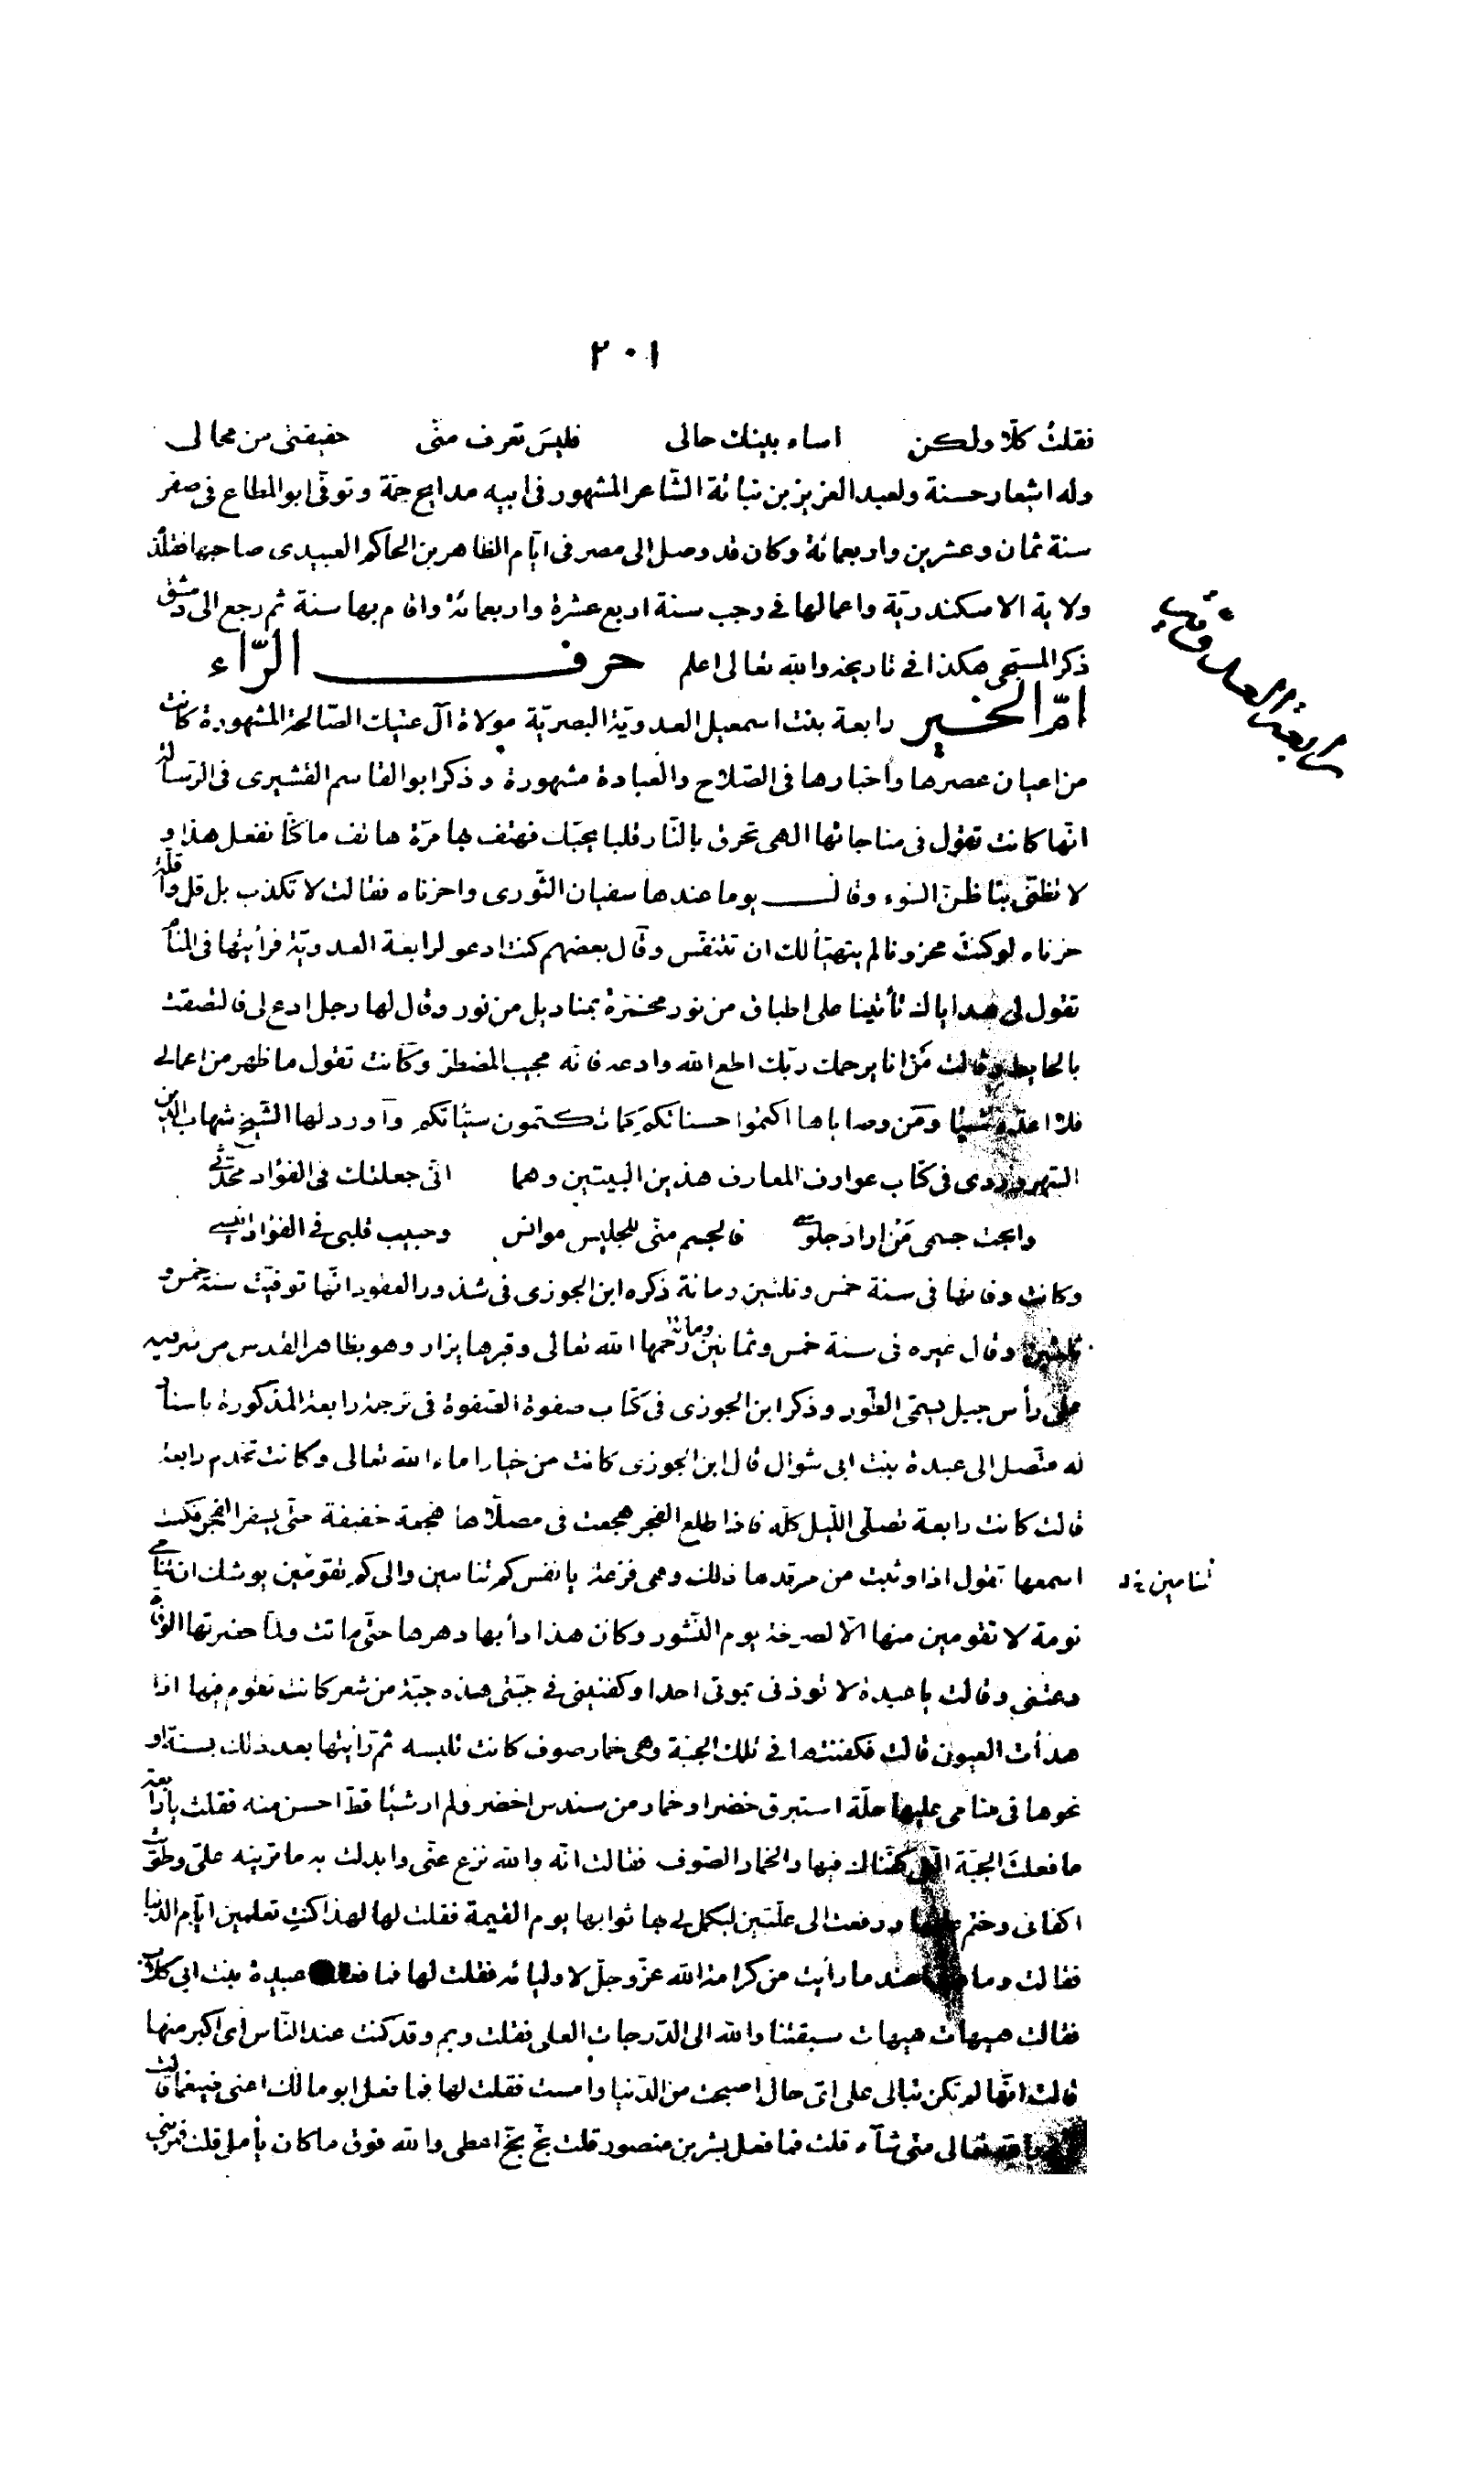 ٢٠١
فقلت كلّا ولكن اساء بينك حالى فليس تعرف منّى حقيقتى من محالى
وله اشعار حسنة ولعبد العزيز بن نباتة الشّاعر المشهور فى ابيه مدايح جمّة وتوفّى ابو المطاع فى صفر
سنة ثمان وعشرين واربعمائة وكان قد وصل الى مصر فى ايّام الظاهر بن الحاكم العبيدى صاحبها فقلّد
ولاية الاسكندريّة واعمالها فى رجب سنة اربع عشرة واربعمائة واقام بها سنة ثم رجع الى دمشق
ذكر المسبّحى هكذا فى تاريخه والله تعالى اعلم حرف الرّاء
رابعة العدوية
امّ الخير رابعة بنت اسمعيل العدويّة البصريّة مولاة آل عتيك الصّالحة المشهورة كانت
من اعيان عصرها واخبارها فى الصّلاح والعبادة مشهورة وذكر ابو القاسم القشيرى فى الرّسالة
انّها كانت تقول فى مناجاتها الهى تحرق بالنّار قلبا يحبّك فهتف بها مرّة هاتف ما كنّا نفعل هذا و
لا تظنّى بنا ظنّ السّوء وقال يوما عندها سفيان الثّورى واحزناه فقالت لا تكذب بل قل واقلّة
حزناه لو كنت محزونا لم يتهيّأ لك ان تتنفّس وقال بعضهم كنت ادعو لرابعة العدويّة فرأيتها فى المنام
تقول لى هداياك تأتينا على اطباق من نور مخمّرة بمناديل من نور وقال لها رجل ادع لى فالتصقت
بالحايط وقالت مَن انا يرحمك ربّك اطع الله وادعه فانّه مجيب المضطرّ وكانت تقول ما ظهر من اعمالى
فلا اعدّه شيئا ومن وصاياها اكتموا حسناتكم كما تكتمون سيّئاتكم واورد لها الشّيخ شهاب الدين
السّهروردى فى كتاب عوارف المعارف هذين البيتين وهما انّى جعلتك فى الفؤاد محدّثى
وابحت جسمى مَن اراد جلوسى فالجسم منّى للجليس موانس وحبيب قلبى فى الفؤاد انيسى
وكانت وفاتها فى سنة خمس وثلثين ومائة ذكره ابن الجوزى فى شذور العقود انّها توفّيت سنة خمس و
ثلثين وقال غيره فى سنة خمس وثمانين ومائة رحمها الله تعالى وقبرها يزار وهو بظاهر القدس من شرقيه
على رأس جبل يسمّى الطّور وذكر ابن الجوزى فى كتاب صفوة الصّفوة فى ترجمة رابعة المذكورة باسنا
له متّصل الى عبدة بنت ابى شوال قال ابن الجوزى كانت من خيار اماء الله تعالى وكانت تخدم رابعة
قالت كانت رابعة تصلّى اللّيل كلّه فاذا طلع الفجر هجعت فى مصلّاها هجعة خفيفة حتّى يسفر الفجر فكنت
اسمعها تقول اذا وثبت من مرقدها ذلك وهى فزعة يا نفس كم تنامين والى كم تقومين يوشك ان تنامى
تنامين
نومة لا تقومين منها الّا لصرخة يوم النّشور وكان هذا دأبها دهرها حتّى ماتت ولمّا حضرتها الوفاة
دعتنى وقالت يا عبدة لا توذنى بموتى احدا وكفنينى فى جبّتى هذه جبّة من شعر كانت تقوم فيها اذا
هدأت العيون قالت فكفنتها فى تلك الجبّة وفى خمار صوف كانت تلبسه ثم رأيتها بعد ذلك بسنة او
نحوها فى منامى عليها حلّة استبرق خضرا وخمار من سندس اخضر ولم ار شيئا قطّ احسن منه فقلت يا رابعة
ما فعلت الجبّة الّتى كفّناك فيها والخمار الصّوف فقالت انّه والله نزع عنّى وابدلت به ما ترينه علىّ وطويت
اكفانى وختم عليها ورفعت الى علّيّين ليكمل لى بها ثوابها يوم القيمة فقلت لها لهذا كنت تعلمين ايّام الدنيا
فقالت وما هذا عند ما رأيت من كرامة الله عزّ وجلّ لاوليائه فقلت لها فما فعلت عبيدة بنت ابى كلاب
فقالت هيهات هيهات سبقتنا والله الى الدّرجات العلى فقلت وبم وقد كنت عند النّاس اى اكبر منها
قالت انّها لم تكن تبالى على اىّ حال اصبحت من الدّنيا وامست فقلت لها فما فعل ابو مالك اعنى ضيغما قالت
يزور الله تعالى متى شآء قلت فما فعل بشر بن منصور قلت بخّ بخّ اعطى والله فوق ما كان يأمل قلت فمرينى